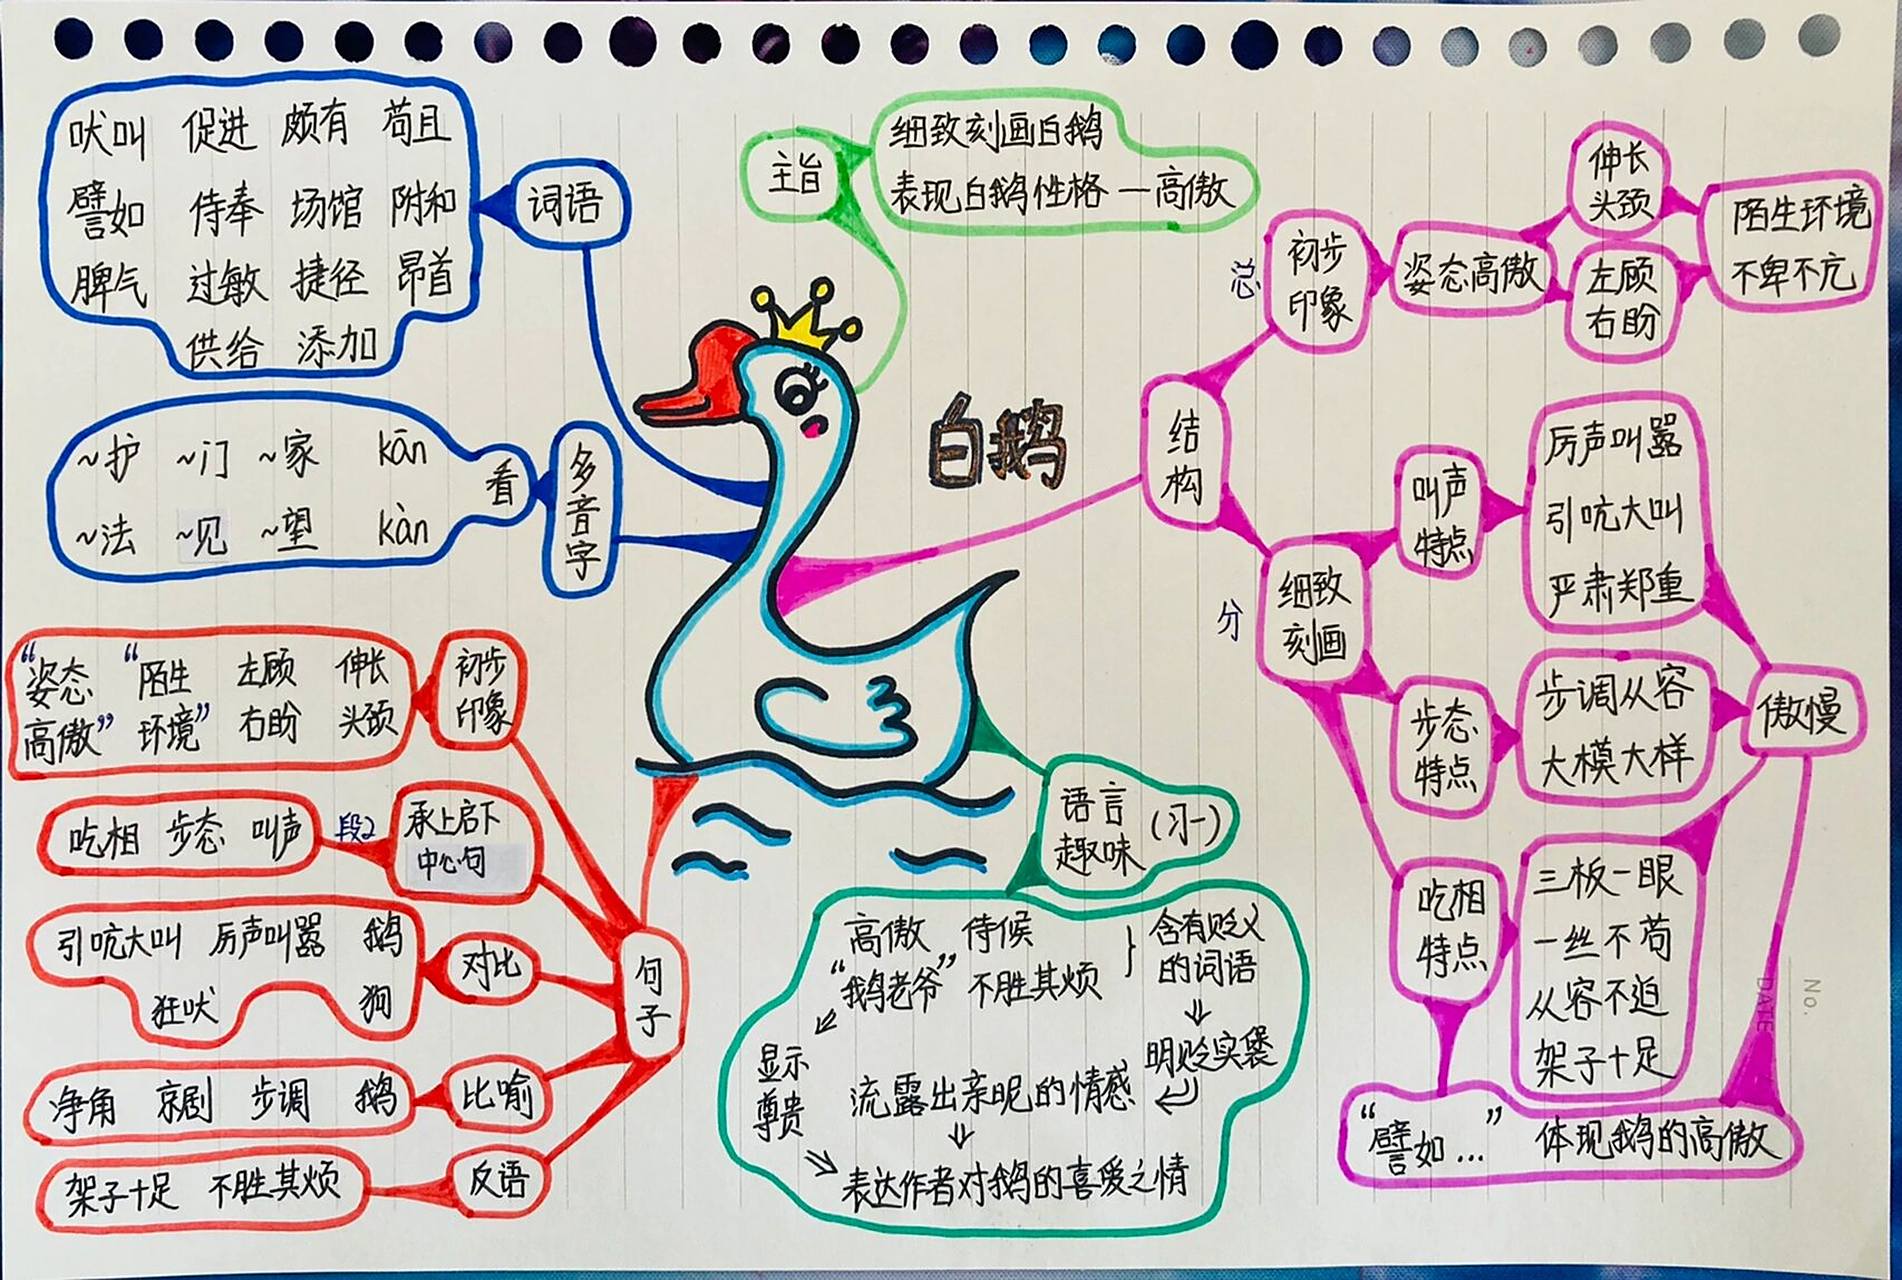 白鹅
主旨
细致刻画白鹅
表现白鹅性格—高傲
词语
吠叫 促进 颇有 苟且
譬如 侍奉 场馆 附和
脾气 过敏 捷径 昂首
供给 添加
多音字
看
~护 ~门 ~家 kān
~法 ~见 ~望 kàn
句子
初步
印象
“姿态 “陌生 左顾 伸长
高傲” 环境” 右盼 头颈
承上启下
中心句
段2
吃相 步态 叫声
对比
引吭大叫 厉声叫嚣 鹅
狂吠 狗
比喻
净角 京剧 步调 鹅
反语
架子十足 不胜其烦
语言
趣味
(习一)
高傲 侍候
“鹅老爷” 不胜其烦
}
含有贬义
的词语
⇓
明贬实褒
显示
尊贵
流露出亲昵的情感
⇓
表达作者对鹅的喜爱之情
结构
总
初步
印象
姿态高傲
伸长
头颈
左顾
右盼
陌生环境
不卑不亢
分
细致
刻画
叫声
特点
厉声叫嚣
引吭大叫
严肃郑重
步态
特点
步调从容
大模大样
傲慢
吃相
特点
三板一眼
一丝不苟
从容不迫
架子十足
“譬如…” 体现鹅的高傲
No.
DATE